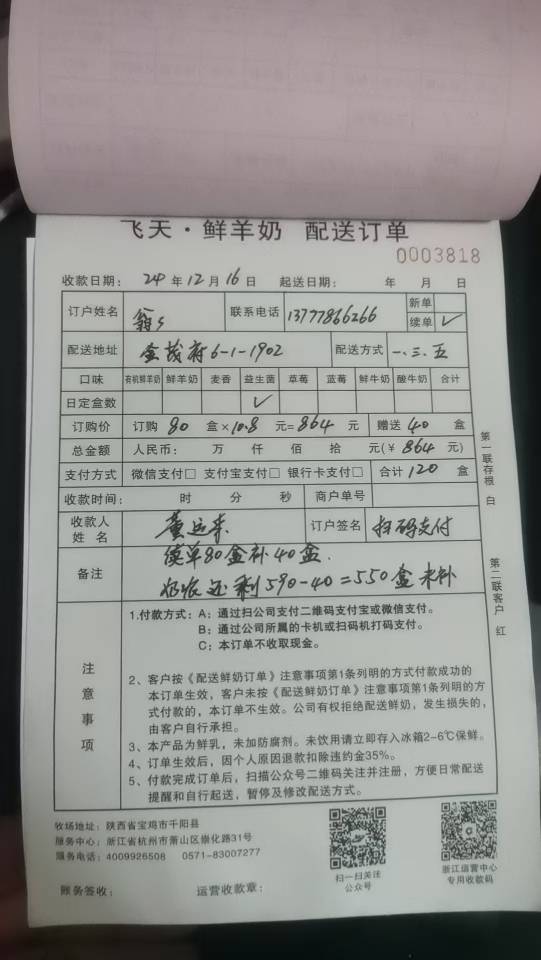 飞天·鲜羊奶 配送订单
0003818
收款日期： 24 年 12 月 16 日 起送日期： 年 月 日
订户姓名 联系电话 13777866266 新单
续单 ✓
配送地址 金茂府6-1-1902 配送方式 一、三、五
口味 有机鲜羊奶 鲜羊奶 麦香 益生菌 草莓 蓝莓 鲜牛奶 酸牛奶 合计
日定盒数 ✓
订购价 订购 80 盒×10.8 元=864 元 赠送 40 盒
总金额 人民币： 万 仟 佰 拾 元(¥ 864 元)
支付方式 微信支付□ 支付宝支付□ 银行卡支付□ 合计 120 盒
收款时间： 时 分 秒 商户单号
收款人姓名 董运来 订户签名 扫码支付
备注 续单80盒补40盒.
还剩590-40=550盒未补
第一联存根 白
第二联客户 红
注意事项
1.付款方式：A；通过扫公司支付二维码支付宝或微信支付。
B；通过公司所属的卡机或扫码机打码支付。
C；本订单不收取现金。
2、客户按《配送鲜奶订单》注意事项第1条列明的方式付款成功的
本订单生效，客户未按《配送鲜奶订单》注意事项第1条列明的方
式付款的，本订单不生效。公司有权拒绝配送鲜奶，发生损失的，
由客户自行承担。
3、本产品为鲜乳，未加防腐剂。未饮用请立即存入冰箱2-6℃保鲜。
4、订单生效后，因个人原因退款扣除违约金35%。
5、付款完成订单后，扫描公众号二维码关注并注册，方便日常配送
提醒和自行起送，暂停及修改配送方式。
牧场地址：陕西省宝鸡市千阳县
服务中心：浙江省杭州市萧山区崇化路31号
服务电话：4009926508 0571-83007277
扫一扫关注
公众号
浙江运营中心
专用收款码
账务签收： 运营收款章：